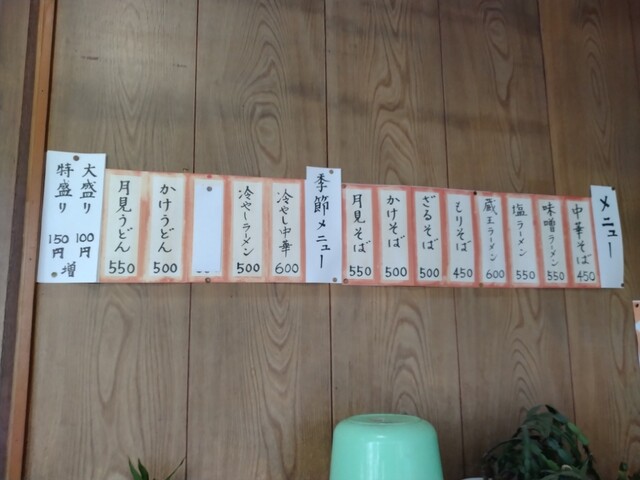 メニュー
中華そば 450
味噌ラーメン 550
塩ラーメン 550
蔵王ラーメン 600
もりそば 450
ざるそば 500
かけそば 500
月見そば 550
季節メニュー
冷やし中華 600
冷やしラーメン 500
かけうどん 500
月見うどん 550
大盛り 100円
特盛り 150円
増